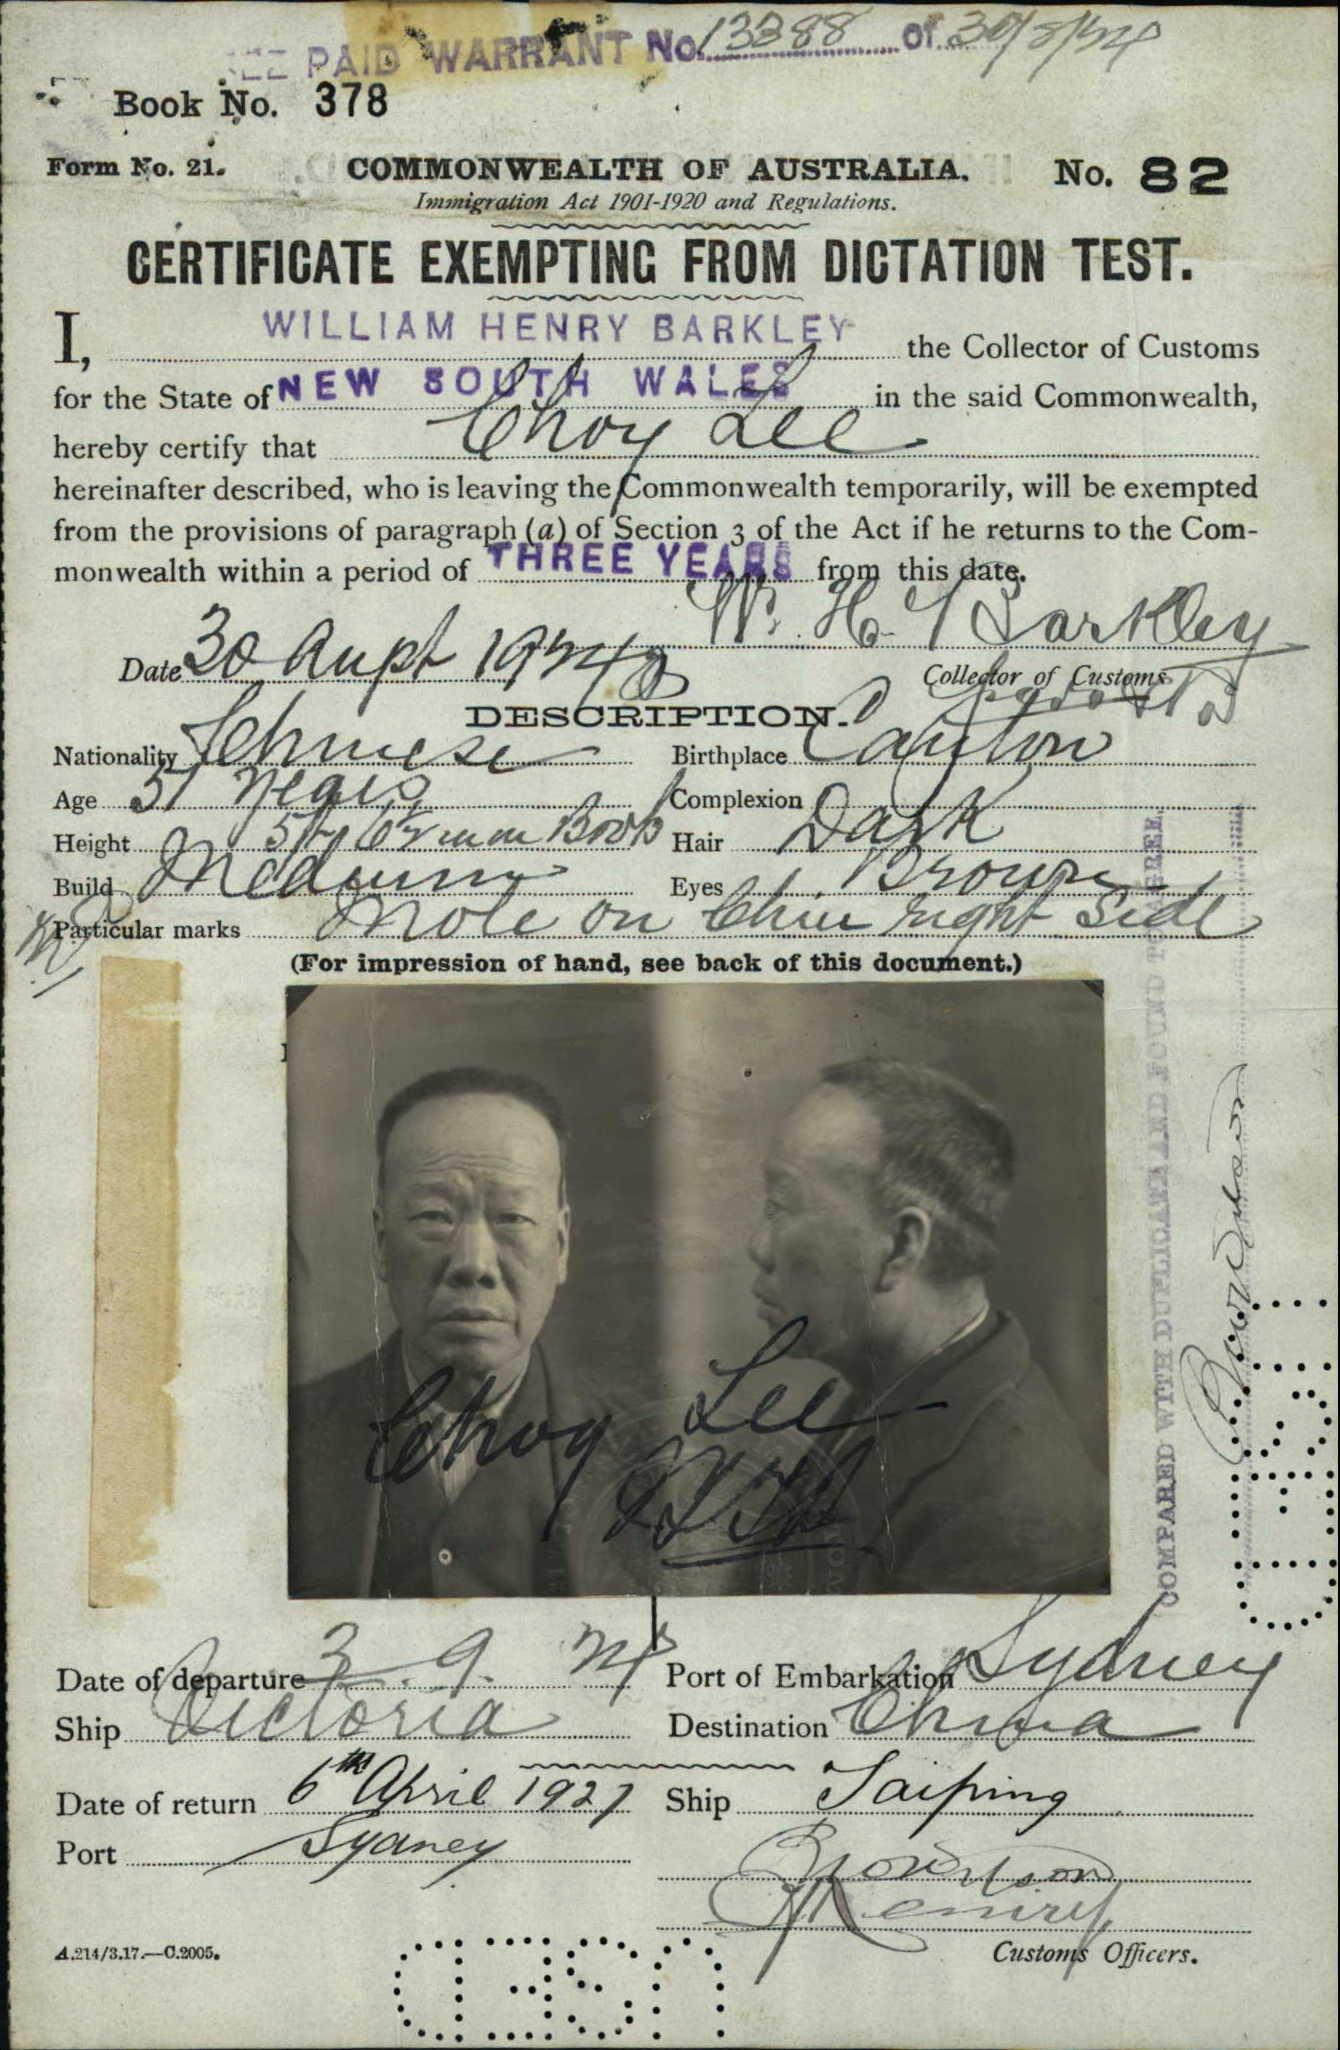 PAID WARRANT No. 13388 of 30/8/24
Book No. 378
Form No. 21. COMMONWEALTH OF AUSTRALIA. No. 82
Immigration Act 1901-1920 and Regulations.
CERTIFICATE EXEMPTING FROM DICTATION TEST.
I, WILLIAM HENRY BARKLEY the Collector of Customs
for the State of NEW SOUTH WALES in the said Commonwealth,
hereby certify that Choy Lee
hereinafter described, who is leaving the Commonwealth temporarily, will be exempted
from the provisions of paragraph (a) of Section 3 of the Act if he returns to the Com-
monwealth within a period of THREE YEARS from this date.
W. H. Barkley
Date 30 Augt 1924 Collector of Customs
DESCRIPTION.
Nationality Chinese Birthplace Canton
Age 51 Years Complexion
Height 5ft 6½ in in Boots Hair Dark
Build Medium Eyes Brown
Particular marks Mole on Chin right Side
(For impression of hand, see back of this document.)
Choy Lee
COMPARED WITH DUPLICATE AND FOUND TO AGREE
Date of departure 3. 9. 24 Port of Embarkation Sydney
Ship Victoria Destination China
Date of return 6th April 1927 Ship Taiping
Port Sydney
A.214/3.17.—C.2005. Customs Officers.
USED